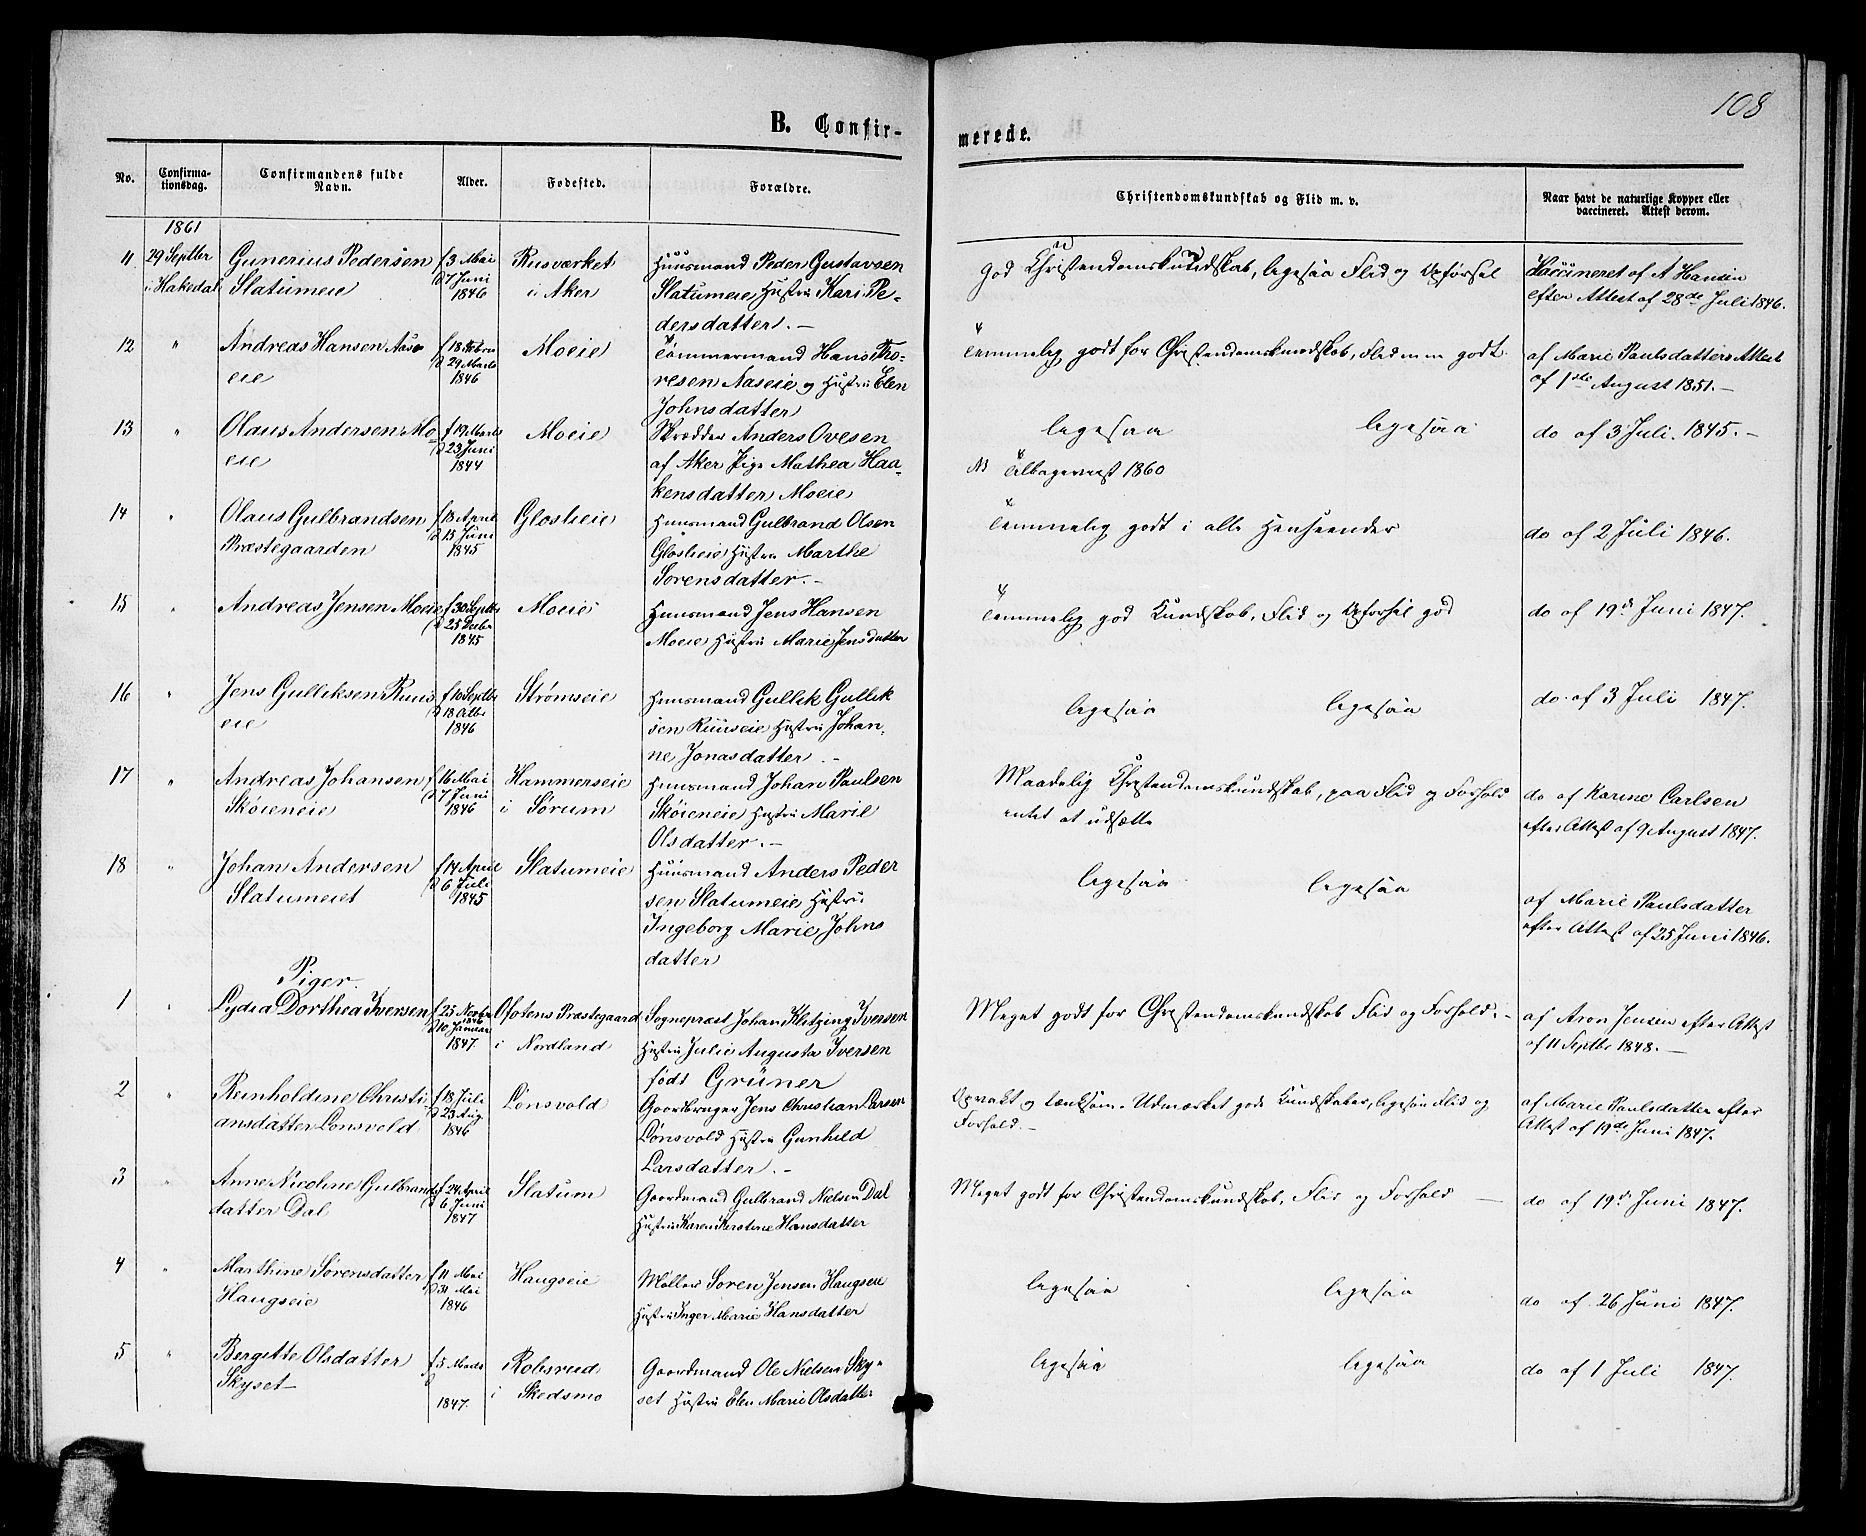 108
B. Confir-
merede.
No.
Confirma-
tionsdag.
Confirmandens fulde
Navn.
Alder.
Fødested.
Forældre.
Christendomskundskab og Flid m. v.
Naar havt de naturlige Kopper eller
vaccineret. Attest derom.
1861
11 29 Septbr Gunerius Pedersen f 3 Mai Rusværket Huusmand Peder Gustavsen God Christendomskundskab, ligesaa Flid og Opførsel Vaccineret af A Hansen
i Hakedal Slatumeie d 7 Juni i Aker Slatumeie Hustru Kari Pe- efter Attest af 28de Juli 1846.
1846 dersdatter. —
12 " Andreas Hansen Aas- f 18 Febr Moeie Tømmermand Hans Tho- Temmelig godt for Christendomskundskab, Flid m m godt. af Marie Paulsdatters Attest
eie d 29 Marts resen Aaseie og Hustru Elen af 1ste August 1851. —
1846 Johnsdatter
13 " Olaus Andersen Mo- f 19 Marts Moeie Skrædder Anders Ovesen ligesaa ligesaa do af 3 Juli. 1845. —
eie d 23 Juni af Aker Pige Mathea Haa- NB Tilbageviist 1860
1844 kensdatter Moeie
14 " Olaus Gulbrandsen f 13 April Glosheie Huusmand Gulbrand Olsen Temmelig godt i alle Henseender do af 2 Juli 1846.
Præstegaarden d 15 Juni Glosheie Hustru Marthe
1845 Sorensdatter. —
15 " Andreas Jensen Moeie f 30 Septbr Moeie Huusmand Jens Hansen Temmelig god Kundskab, Flid og Opførsel god do af 19de Juni 1847.
d 25 Decbr Moeie Hustru Marie Jensdatter
1845
16 " Jens Gulliksen Ruus f 10 Septbr Strømseie Huusmand Gullik Gullik ligesaa ligesaa do. af 3 Juli 1847.
eie d 18 Octbr sen Ruuseie Hustru Johan-
1846 ne Jonasdatter. —
17 " Andreas Johansen f 16 Mai Hammerseie Huusmand Johan Paulsen Maadelig Christendomskundskab, paa Flid og Forhold do af Karine Carlsen
Skøieneie d 7 Juni i Sørum Skøieneie Hustru Marie intet at udsætte efter Attest af 9 August 1847.
1846 Olsdatter. —
18 " Johan Andersen f 14 April Slatumeie Huusmand Anders Peder ligesaa ligesaa af Marie Paulsdatter
Slatumeiet d 6 Juli sen Slatumeie Hustru efter Attest af 25 Juni 1846.
1845 Ingeborg Marie Johns
datter
Piger.
1 " Lydia Dorthea Iversen f 25 Novbr 1846 Ofotens Præstegaard Sognepræst Johan Klitzing Iversen Meget godt for Christendomskundskab Flid og Forhold. — af Aron Jensen efter Attest
d 10 Januar i Nordland Hustru Julie Augusta Iversen af 11 Septbr 1848. —
1847 født Grüner
2 " Reinholdine Christi f 18 Juli Lønsvold Gaardbruger Jens Christian Larsen Opvakt og tænksom. Udmærket gode Kundskaber, ligesaa Flid og af Marie Paulsdatter efter
ansdatter Lønsvold d 23 Aug Lønsvold Hustru Gunhild Forhold. — Attest af 19de Juni 1847.
1846 Larsdatter. —
3 " Anne Nicoline Gulbrands f 24 April Slatum Gaardmand Gulbrand Nielsen Dal Meget godt for Christendomskundskab, Flid og Forhold — do af 19de Juni 1847.
datter Dal d 6 Juni Hustru Karen Kirstine Hansdatter
1847
4 " Marthine Sørensdatter f 11 Mai Haugseie Møller Soren Jensen Haugseie ligesaa ligesaa do af 26 Juni 1847.
Haugseie d 31 Mai Hustru Inger Marie Hansdatter
1846
5 " Bergitte Olsdatter f 5 Marts Rohsrud Gaardmand Ole Nielsen Sky- ligesaa ligesaa do af 1 Juli 1847.
Skyset d i Skedsmo set Hustru Elen Marie Olsdatter
1847.